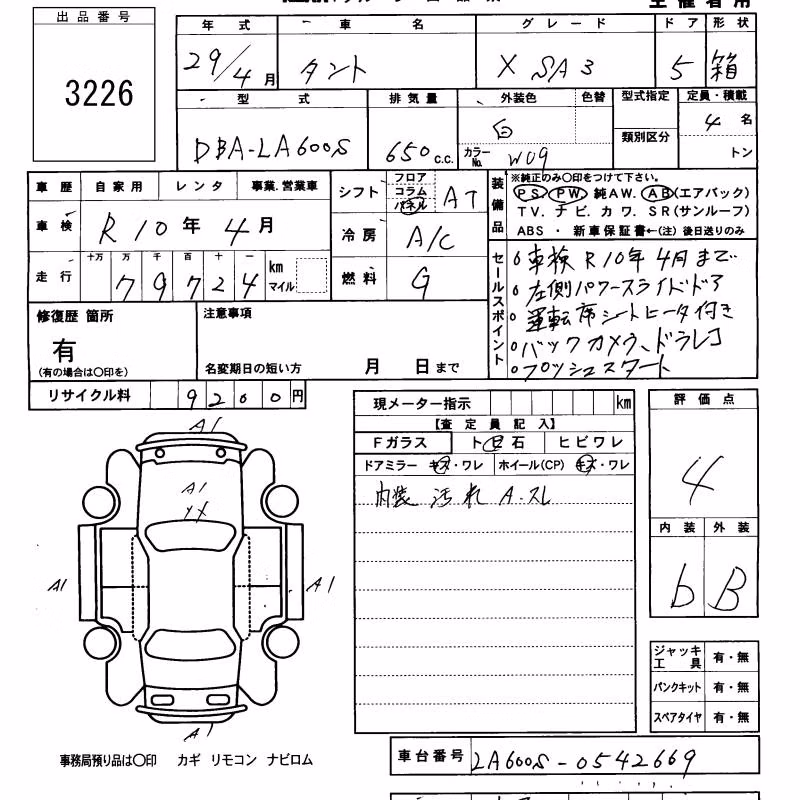 出品番号
3226
主催者用
年式 車名 グレード ドア 形状
29/4月 タント X SA3 5 箱
型式 排気量 外装色 色替 型式指定 定員・積載
DBA-LA600S 650c.c. 白 4名
カラーNo. W09 類別区分 トン
車歴 自家用 レンタ 事業.営業車
車検 R10年4月
走行 十万 万 千 百 十 一
79724 km マイル
シフト フロア コラム パネル AT
冷房 A/C
燃料 G
装備品
※純正のみ〇印をつけて下さい。
PS. PW. 純AW. AB(エアバック)
TV. ナビ. カワ. SR(サンルーフ)
ABS ・ 新車保証書←(注)後日送りのみ
セールスポイント
車検 R10年4月まで
左側パワースライドドア
運転席シートヒータ付き
バックカメラ、ドラレコ
プッシュスタート
修復歴 箇所
有
(有の場合は〇印を)
注意事項
名変期日の短い方 月 日まで
リサイクル料 9200円
現メーター指示 km
【査定員記入】
Fガラス ト ビ 石 ヒビワレ
ドアミラー キズ・ワレ ホイール(CP) キズ・ワレ
内装 汚れ A.スレ
評価点
4
内装 外装
b B
ジャッキ工具 有・無
パンクキット 有・無
スペアタイヤ 有・無
A1
A1
YX
A1
A1
A1
事務局預り品は〇印 カギ リモコン ナビロム
車台番号 LA600S-0542669